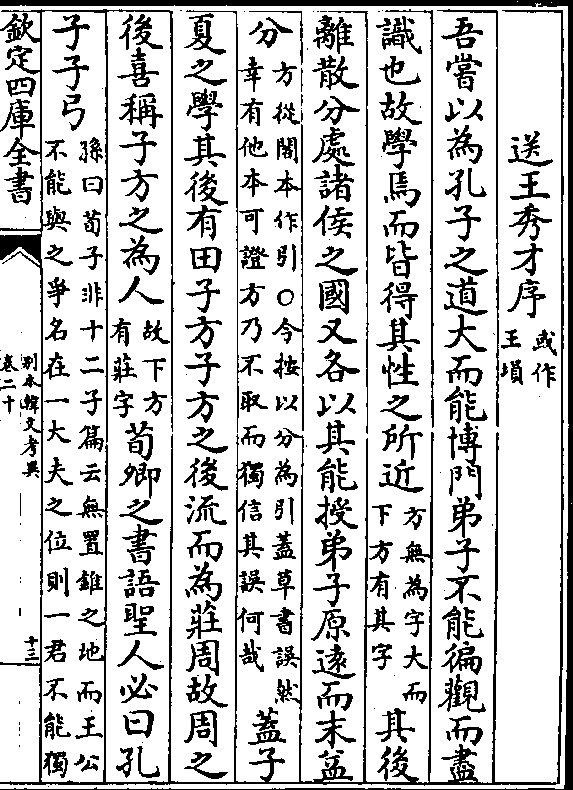 送王秀才序或作王塤
吾嘗以為孔子之道大而能博門弟子不能徧觀而盡
識也故學焉而皆得其性之所近方無為字大而下方有其字其後
離散分處諸侯之國又各以其能授弟子原遠而末益
分方從閣本作引〇今按以分為引蓋草書誤然幸有他本可證方乃不取而獨信其誤何哉蓋子
夏之學其後有田子方子方之後流而為莊周故周之
後喜稱子方之為人故下方有莊字荀卿之書語聖人必曰孔
子子弓孫曰荀子非十二子篇云無置錐之地而王公不能與之爭名在一大夫之位則一君不能獨
欽定四庫全書
別本韓文考異
卷二十
十三